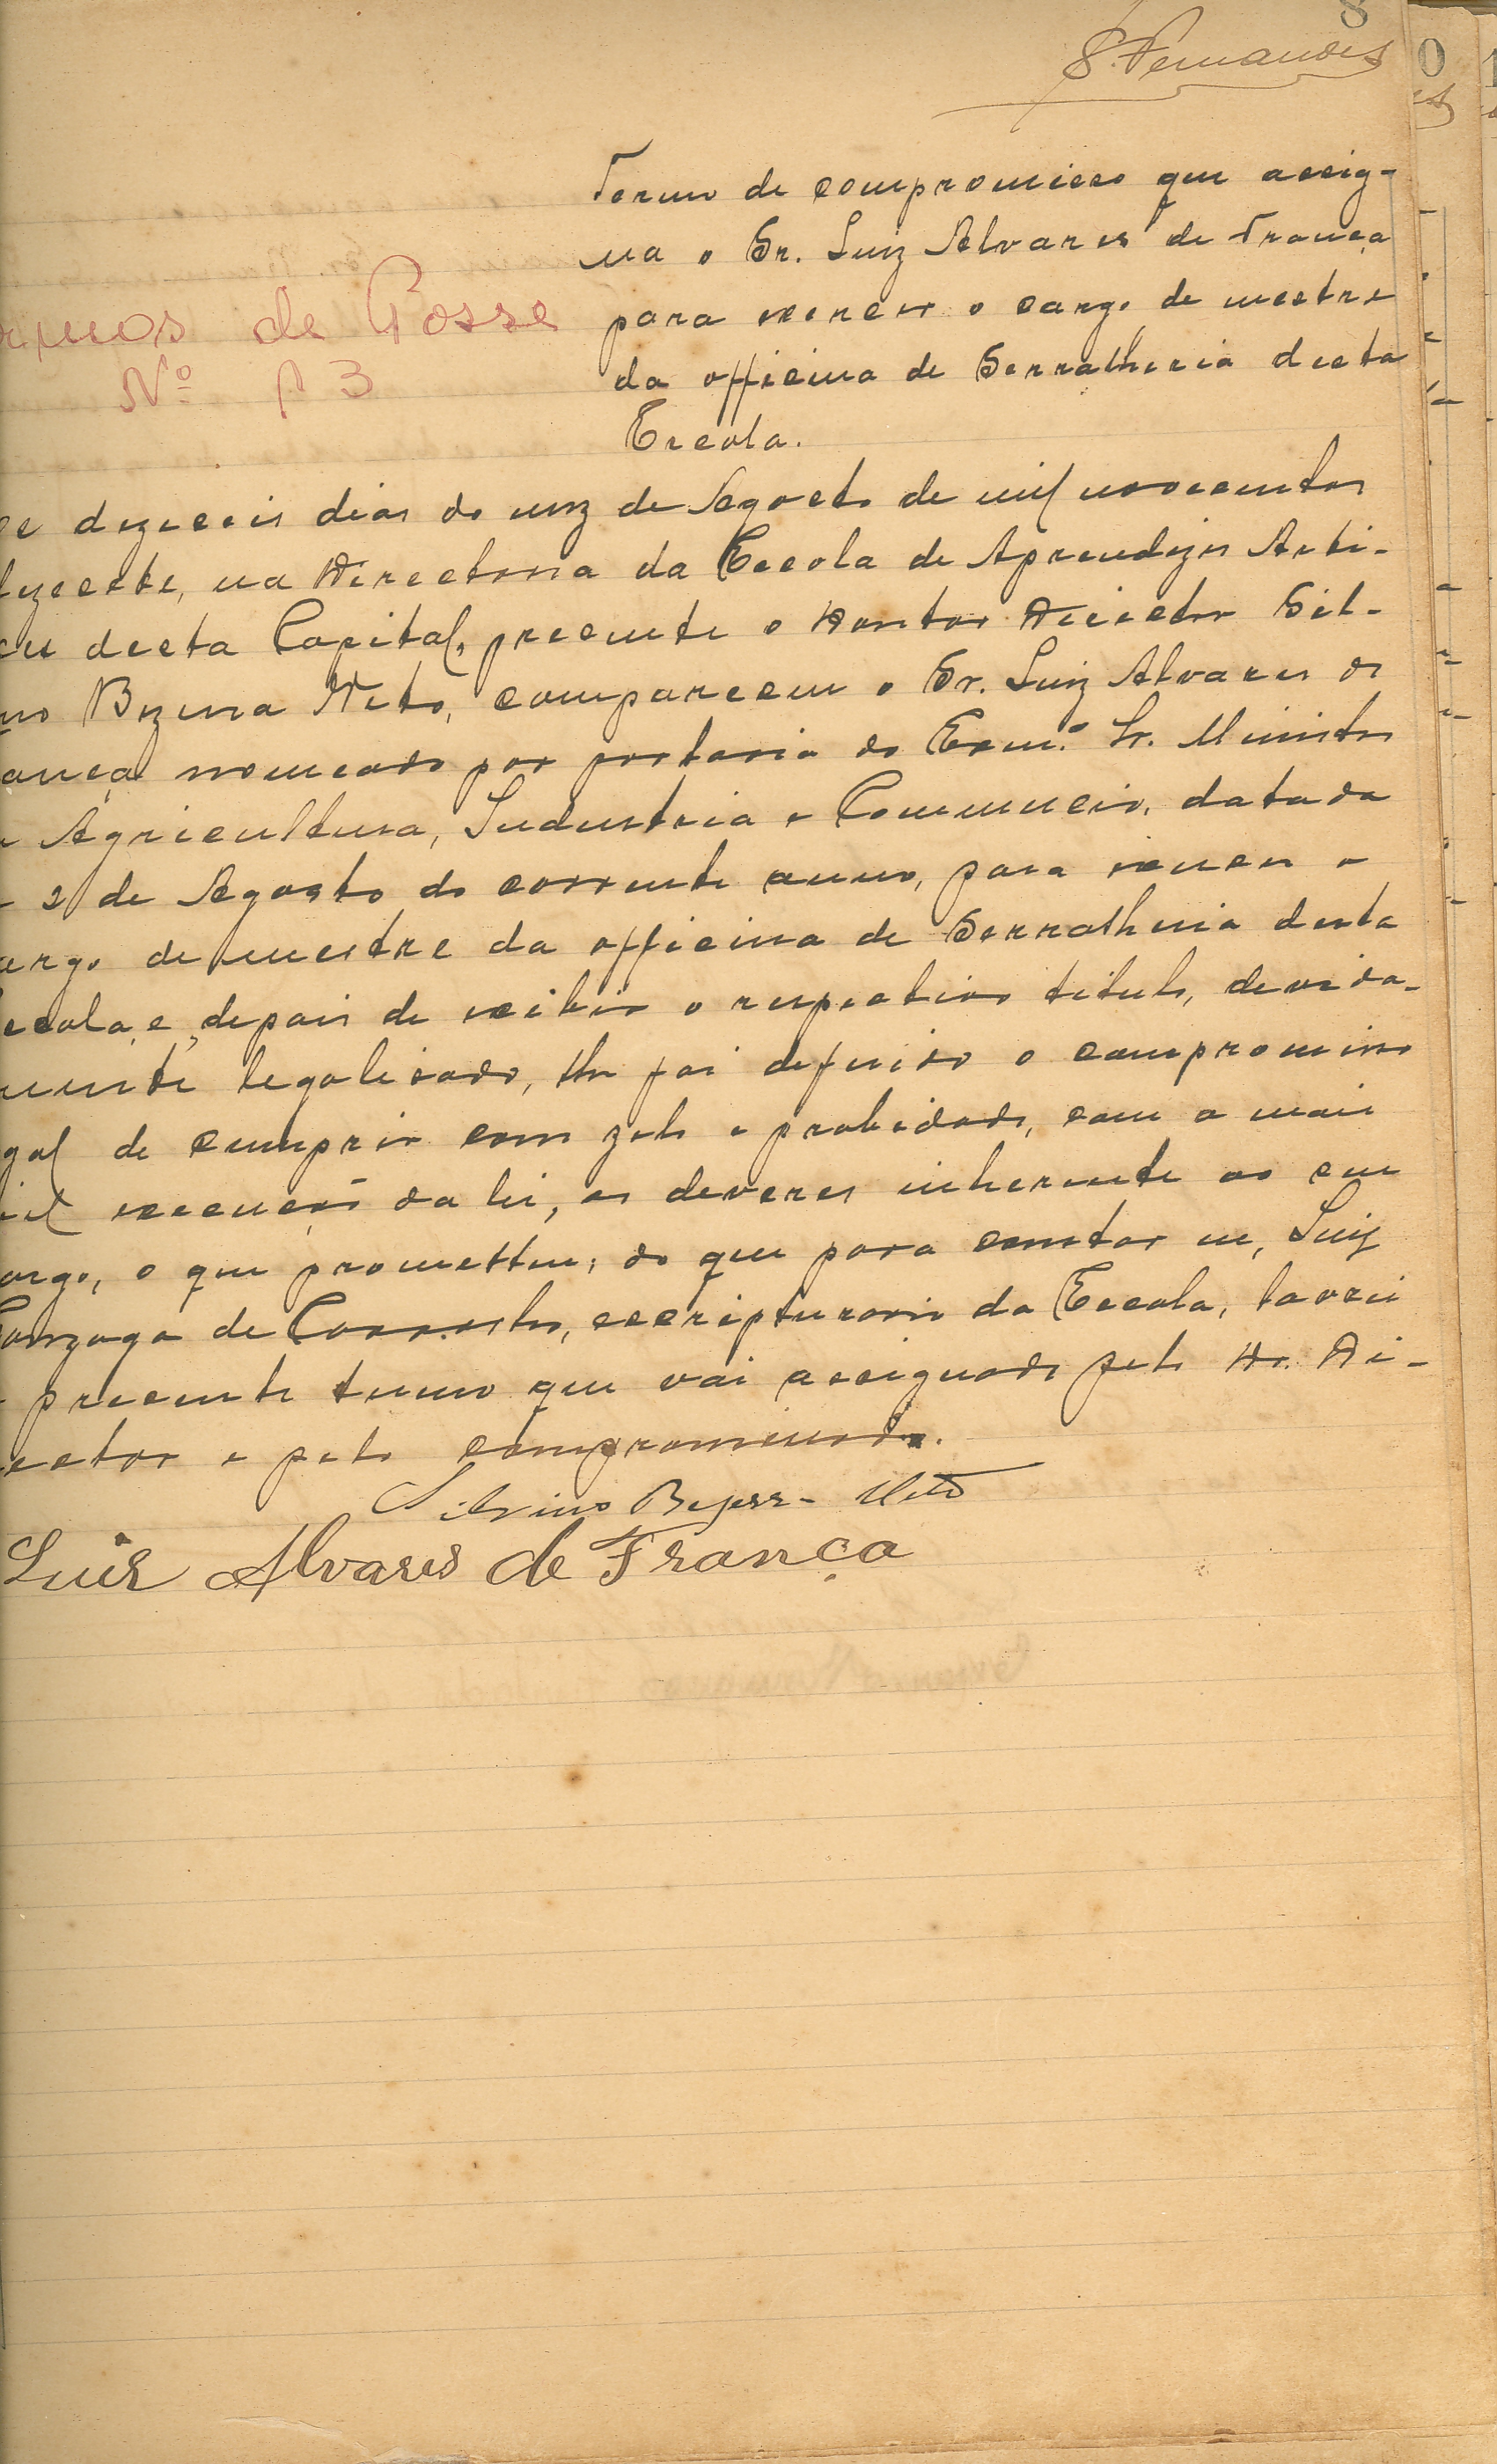 8
S. Fernandes
Termo de compromisso que assig-
na o Sr. Luiz Alvares de França
para exercer o cargo de mestre
da officina de Serralheria desta
Escola.
ermos de Posse
Nº 13
os dezeseis dias do mez de Agosto de mil novecentos
dezesete, na Directoria da Escola de Aprendizes Arti-
ces desta Capital, presente o Doutor Director Sil-
no Bezerra Neto, compareceu o Sr. Luiz Alvares de
ança nomeado por portaria do Exmº Sr. Ministro
Agricultura, Industria e Commercio, datada
2 de Agosto do corrente anno, para exercer o
argo de mestre da officina de Serralheria desta
scola, e, depois de exibir o respectivo titulo, devida-
mente legalisado, lhe foi deferido o compromisso
gal de cumprir com zelo e probidade, com a mais
iel execução da lei, os deveres inherente ao seu
argo, o que prometteu; do que para constar eu, Luiz
Gonzaga de, escripturario da Escola, lavrei
presente termo que vai assignado pelo Dr. Di-
ector e pelo compromissado.
Silvino Bezerra Neto
Luis Alvares de França